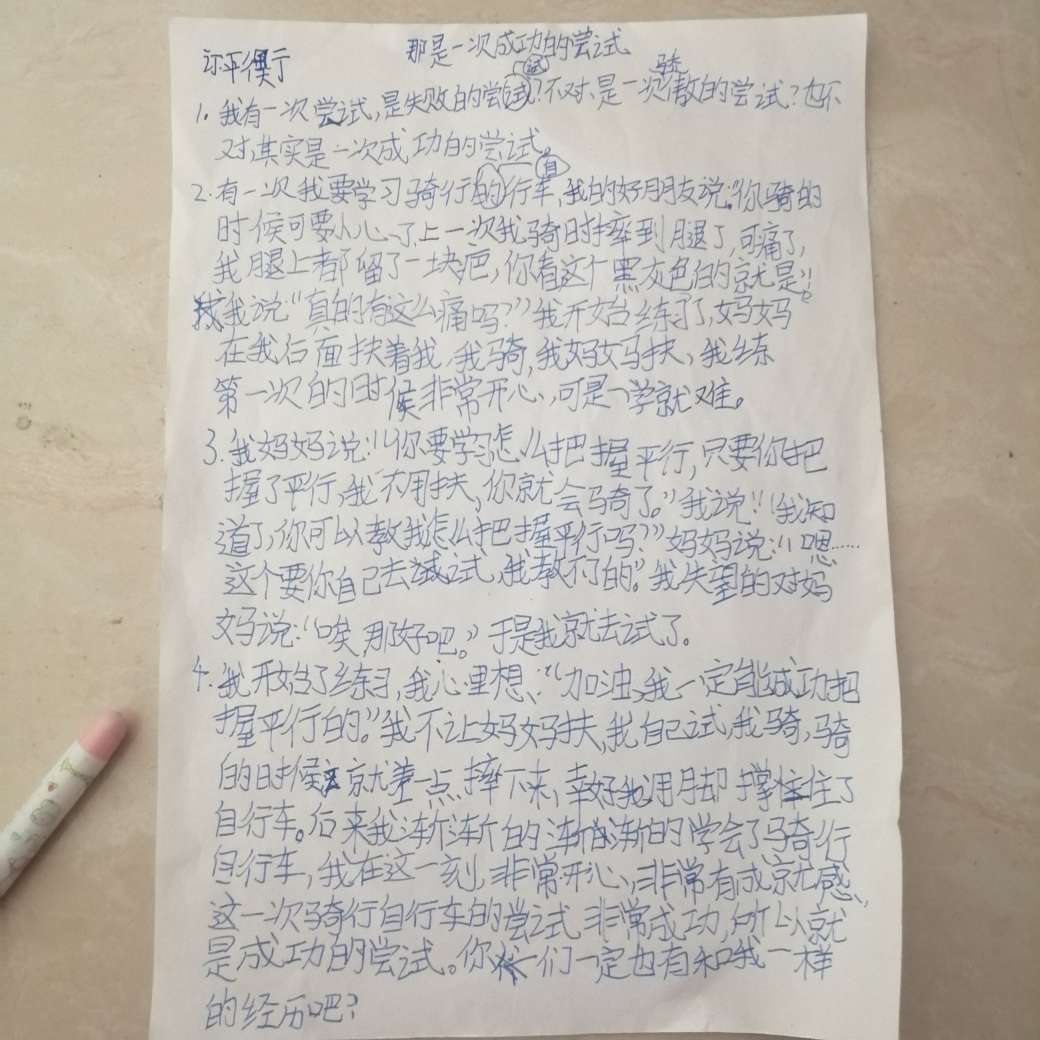 那是一次成功的尝试
1. 我有一次尝试,是失败的尝试?不对、是一次骄傲的尝试?也不
对,其实是一次成功的尝试。
2. 有一次我要学习骑行自行车,我的好朋友说:“你骑的
时候可要小心了,上一次我骑时摔到腿了,可痛了,
我腿上都留了一块疤,你看这个黑灰色的就是”!
我说“真的有这么痛吗?”我开始练习了,妈妈
在我后面扶着我,我骑,我妈妈扶、我练
第一次的时候非常开心,可是一学就难。
3. 我妈妈说:“你要学习怎么把握平行,只要你把
握了平行,我不用扶,你就会骑了。”我说:“我知
道了,你可以教我怎么把握平行吗?”妈妈说:“嗯……
这个要你自己去试试,我教不了的”。我失望的对妈
妈说:“唉,那好吧。”于是我就去试了。
4. 我开始了练习,我心里想:“加油,我一定能成功把
握平行的。”我不让妈妈扶,我自己试,我骑,骑
的时候就差一点摔下来,幸好我用脚撑住了
自行车。后来我渐渐的渐渐的学会了骑行
自行车,我在这一刻,非常开心,非常有成就感、
这一次骑行自行车的尝试非常成功,所以就
是成功的尝试。你们一定也有和我一样
的经历吧?